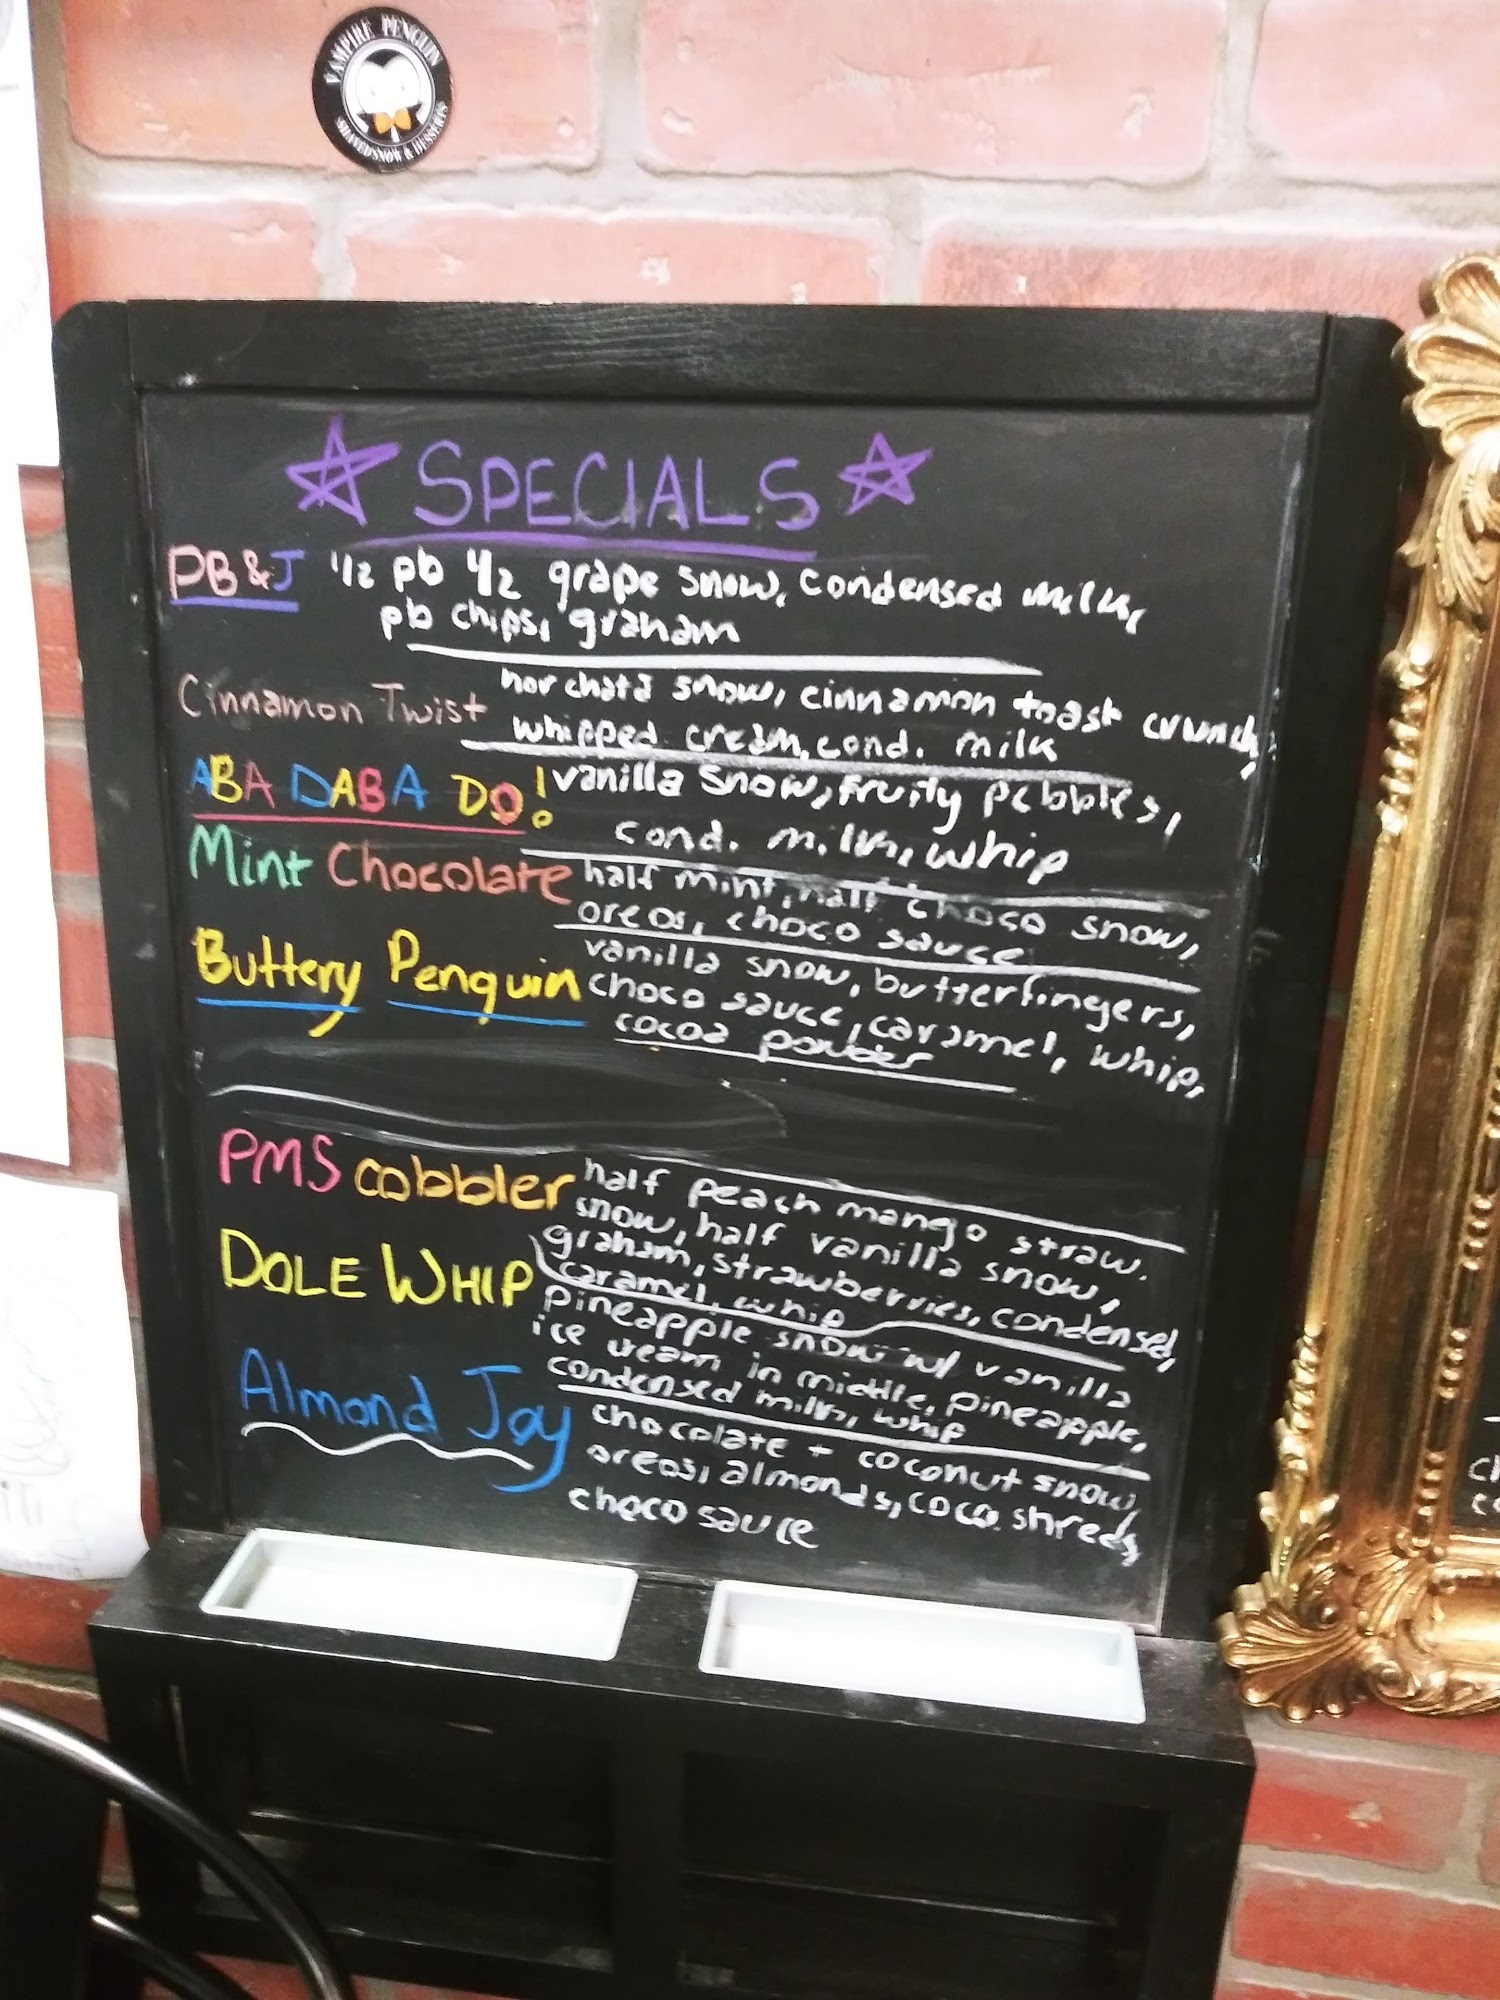 VAMPIRE PENGUIN
SHAVED SNOW & DESSERTS
SPECIALS
PB&J 1/2 pb 1/2 grape snow, condensed milk,
pb chips, graham
Cinnamon Twist horchata snow, cinnamon toast crunch,
whipped cream, cond. milk
ABA DABA DO! vanilla snow, fruity pebbles,
cond. milk, whip
Mint Chocolate half mint, half choco snow,
oreos, choco sauce
Buttery Penguin vanilla snow, butterfingers,
choco sauce, caramel, whip,
cocoa powder
PMS cobbler half peach mango straw.
snow, half vanilla snow,
graham, strawberries, condensed,
caramel, whip
DOLE WHIP pineapple snow w/ vanilla
ice cream in middle, pineapple,
condensed milk, whip
Almond Joy chocolate + coconut snow,
oreos, almonds, coco. shreds,
choco sauce